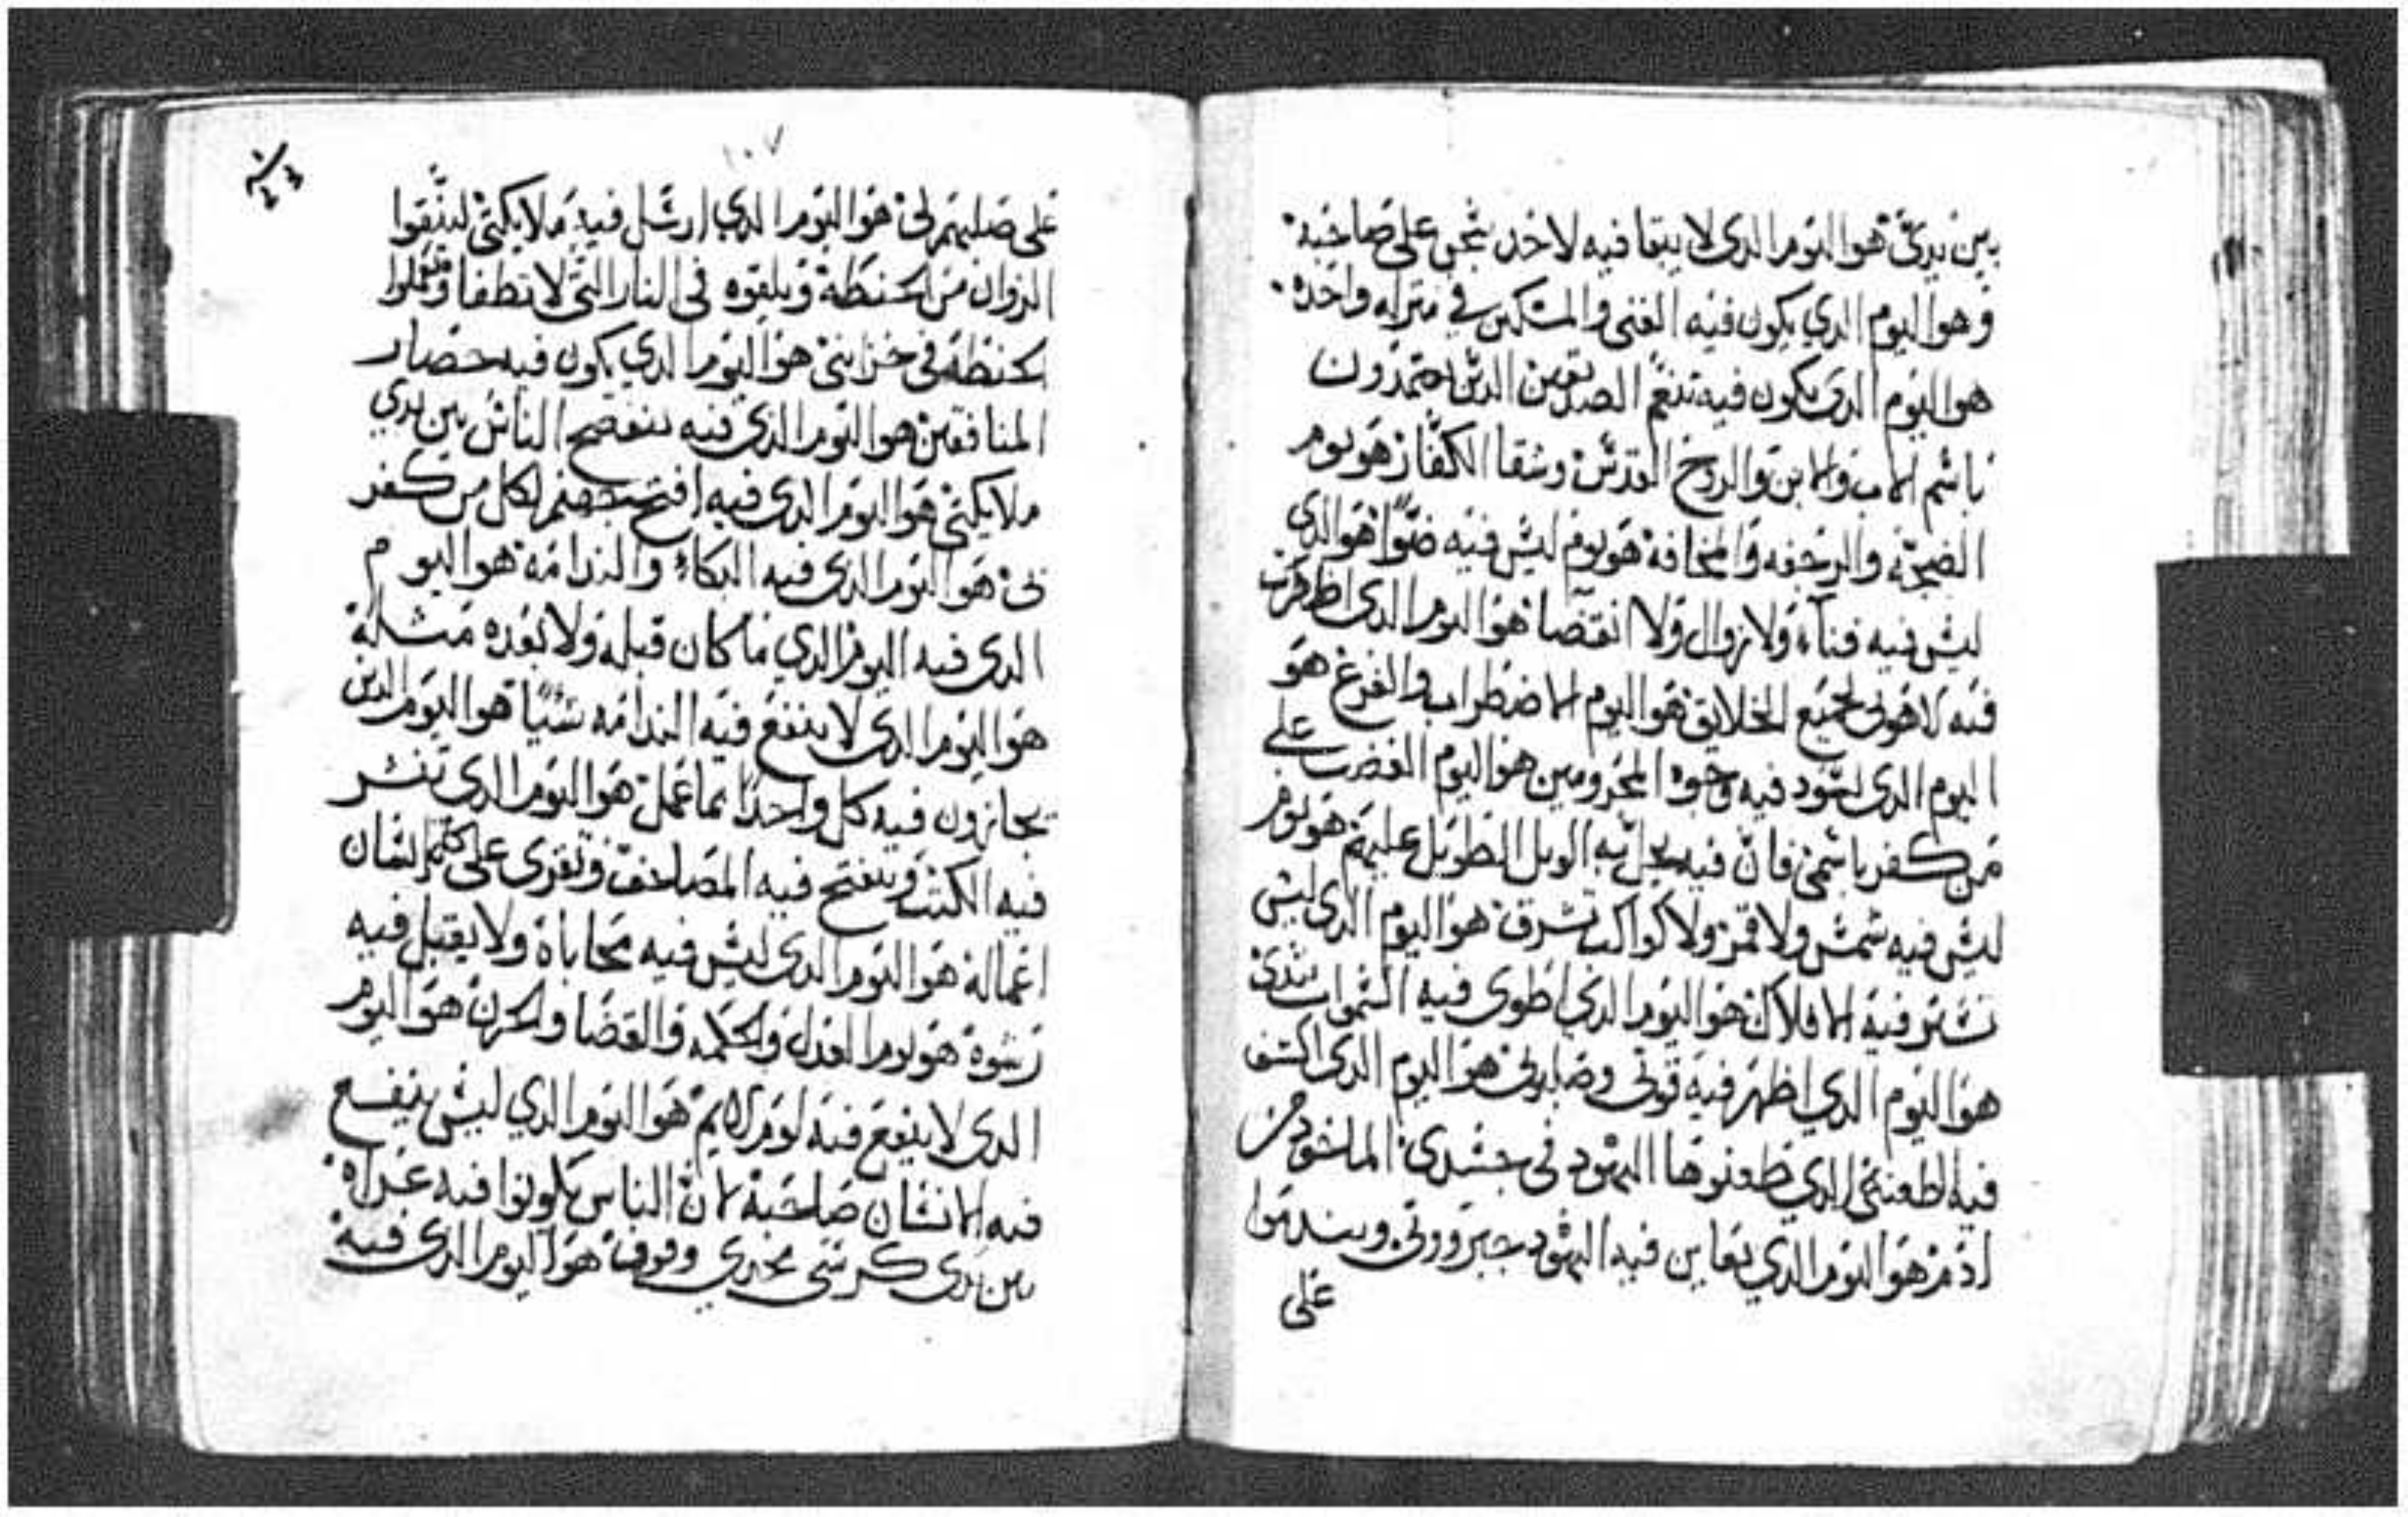 بين يدي هوا اليوم الدي لا يبقا فيه لاحد سجن على صاحبه
وهوا اليوم الدي يكون فيه الغني والمسكين في منزله واحده
هوا اليوم الدي يكون فيه تنعم الصديقين الدين
باسم الاب والابن والروح القدس وشقا الكفار هو يوم
الضجه والرجفه والمخافة هو يوم ليس فيه ضوا هوا الدي
ليس فيه فناء ولا زوال ولا انقضا هوا اليوم الدي اظهرت
فيه لاهوتي لجميع الخلايق هوا اليوم الاضطراب والفزع هو
اليوم الدي تسود فيه وجوه المجرومين هوا اليوم الغضب على
من كفر باسمي فان فيه يحل به الويل الطويل عليهم هو يوم
ليس فيه شمس ولا قمر ولا كواكب تشرق هوا اليوم الدي ليس
تستر فيه الافلاك هوا اليوم الدي اطوى فيه السموات بيدي
هوا اليوم الدي اظهر فيه قوتي وصابرتي هوا اليوم الدي اكشف
فيه الطعنه الدي طعنوها اليهود في جسدي الماخود من
ادم هوا اليوم الدي تعاين فيه اليهود جبروتي ويندموا
على
١٠٧
على صلبهم لي هوا اليوم الدي ارسل فيه ملايكتي لينقوا
الزوان من الحنطة ويلقوه في النار التي لا تطفا
الحنطة في خزاينى هوا اليوم الدي يكون فيه حصار
المنافقين هوا اليوم الدي فيه ينفضح الناس بين يدي
ملايكتي هوا اليوم الدي فيه افتح جهنم لكل من كفر
بى هوا اليوم الدي فيه البكاء والندامة هوا اليوم
الدي فيه اليوم الدي ما كان قبله ولا بعده مثله
هوا اليوم الدي لا ينفع فيه الندامه شيا هوا اليوم الدين
يجازون فيه كل واحدا بما عمل هوا اليوم الدي تنشر
فيه الكتب وينفتح فيه المصاحف وتقرى على كل انسان
اعماله هوا اليوم الدي ليس فيه محاباة ولا يقبل فيه
رشوة هو يوم العدل والحكمه والقضا والحزن هوا اليوم
الدي لا ينفع فيه لوم لايم هوا اليوم الدي ليس ينفع
فيه الانسان صاحبه لان الناس يكونوا فيه عراه
بين يدي كرسى مجدي وقوف هوا اليوم الدي فيه